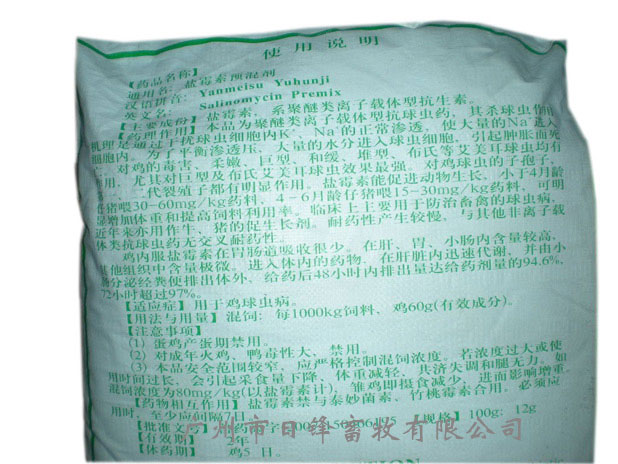 使用说明
【药品名称】
通用名：盐霉素预混剂
汉语拼音：Yanmeisu Yuhunji
英文名：Salinomycin Premix
【主要成份】盐霉素，系聚醚类离子载体型抗生素。
【药理作用】本品为聚醚类离子载体型抗球虫药，其杀球虫作用
机理是通过干扰球虫细胞内K⁺、Na⁺的正常渗透，使大量的Na⁺进入
细胞内。为了平衡渗透压，大量的水分进入球虫细胞，引起肿胀而死
。对鸡的毒害、柔嫩、巨型、和缓、堆型、布氏等艾美耳球虫均有
作用，尤其对巨型及布氏艾美耳球虫效果最强。对鸡球虫的子孢子，
二代裂殖子都有明显作用。盐霉素能促进动物生长，小于4月龄
仔猪喂30-60mg/kg药料，4-6月龄仔猪喂15-30mg/kg药料，可明
显增加体重和提高饲料利用率。临床上主要用于防治畜禽的球虫病，
近年来亦用作牛、猪的促生长剂。耐药性产生较慢。与其他非离子载
体类抗球虫药无交叉耐药性。
鸡内服盐霉素在胃肠道吸收很少。在肝、胃、小肠内含量较高，
其他组织中含量极微。进入体内的药物，在肝脏内迅速代谢，并由小
肠分泌经粪便排出体外，给药后48小时内排出量达给药剂量的94.6%，
72小时超过97%。
【适应症】用于鸡球虫病。
【用法与用量】混饲：每1000kg饲料，鸡60g(有效成分)。
【注意事项】
(1) 蛋鸡产蛋期禁用。
(2) 对成年火鸡、鸭毒性大，禁用。
(3) 本品安全范围较窄，应严格控制混饲浓度。若浓度过大或使
用时间过长，会引起采食量下降、体重减轻、共济失调和腿无力。如
混饲浓度为80mg/kg(以盐霉素计)，雏鸡即摄食减少，进而影响增重。
【药物相互作用】盐霉素禁与泰妙菌素、竹桃霉素合用，必须应
用时，至少应间隔7日。
【批准文号】 【规格】100g：12g
【有效期】 年
【休药期】鸡5日。
广州市日锋畜牧有限公司